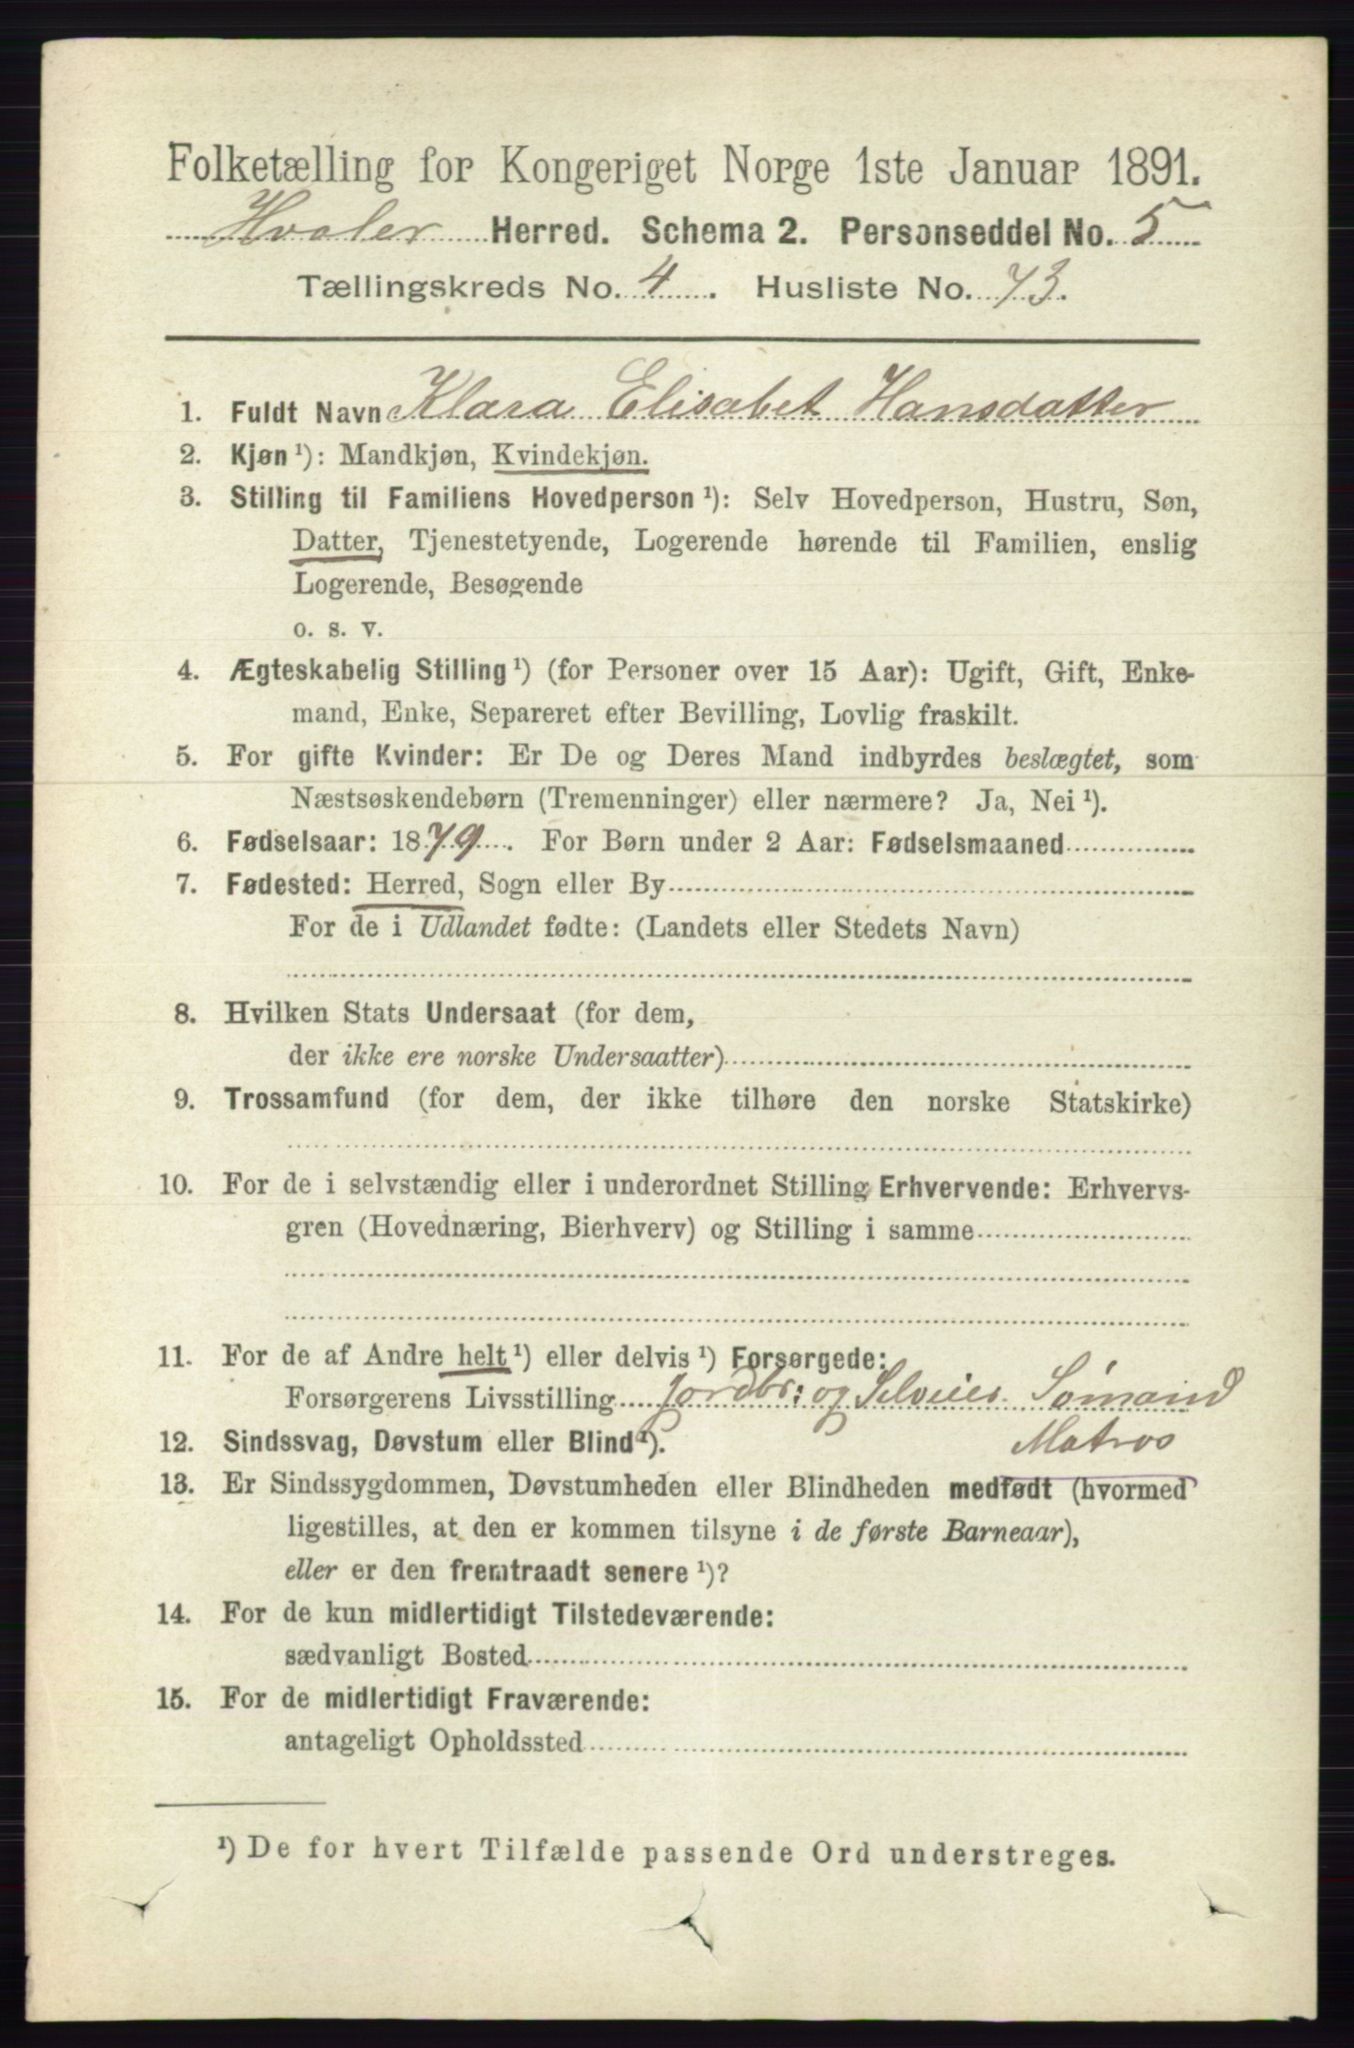 Folketælling for Kongeriget Norge 1ste Januar 1891.
Hvaler Herred. Schema 2. Personseddel No. 5
Tællingskreds No. 4. Husliste No. 73.
1. Fuldt Navn Klara Elisabet Hansdatter
2. Kjøn ¹): Mandkjøn, Kvindekjøn.
3. Stilling til Familiens Hovedperson ¹): Selv Hovedperson, Hustru, Søn,
Datter, Tjenestetyende, Logerende hørende til Familien, enslig
Logerende, Besøgende
o. s. v.
4. Ægteskabelig Stilling ¹) (for Personer over 15 Aar): Ugift, Gift, Enke-
mand, Enke, Separeret efter Bevilling, Lovlig fraskilt.
5. For gifte Kvinder: Er De og Deres Mand indbyrdes beslægtet, som
Næstsøskendebørn (Tremenninger) eller nærmere? Ja, Nei ¹).
6. Fødselsaar: 1879. For Børn under 2 Aar: Fødselsmaaned
7. Fødested: Herred, Sogn eller By
For de i Udlandet fødte: (Landets eller Stedets Navn)
8. Hvilken Stats Undersaat (for dem,
der ikke ere norske Undersaatter)
9. Trossamfund (for dem, der ikke tilhøre den norske Statskirke)
10. For de i selvstændig eller i underordnet Stilling Erhvervende: Erhvervs-
gren (Hovednæring, Bierhverv) og Stilling i samme
11. For de af Andre helt ¹) eller delvis ¹) Forsørgede:
Forsørgerens Livsstilling Jordbr: og Selveier Sömand
Matros
12. Sindssvag, Døvstum eller Blind ¹).
13. Er Sindssygdommen, Døvstumheden eller Blindheden medfødt (hvormed
ligestilles, at den er kommen tilsyne i de første Barneaar),
eller er den fremtraadt senere ¹)?
14. For de kun midlertidigt Tilstedeværende:
sædvanligt Bosted
15. For de midlertidigt Fraværende:
antageligt Opholdssted
¹) De for hvert Tilfælde passende Ord understreges.